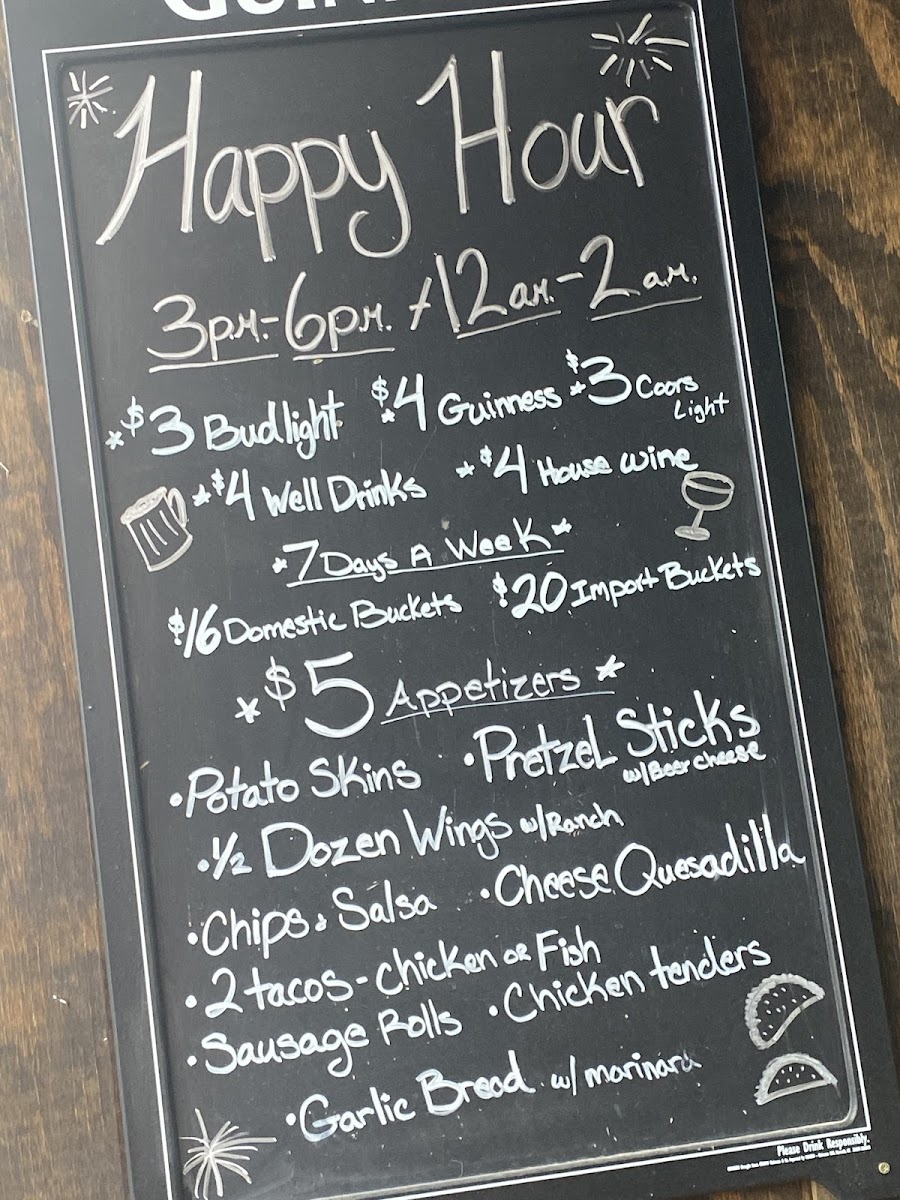 Happy Hour
3p.m.-6p.m. + 12a.m.-2a.m.
*$3 Budlight *$4 Guinness *$3 Coors Light
*$4 Well Drinks *$4 House wine
*7 Days A Week*
$16 Domestic Buckets $20 Import Buckets
*$5 Appetizers*
•Potato Skins •Pretzel Sticks
w/Beer cheese
•1/2 Dozen Wings w/Ranch
•Chips & Salsa •Cheese Quesadilla
•2 tacos - chicken or Fish
•Sausage Rolls •Chicken tenders
•Garlic Bread w/ marinara
Please Drink Responsibly.